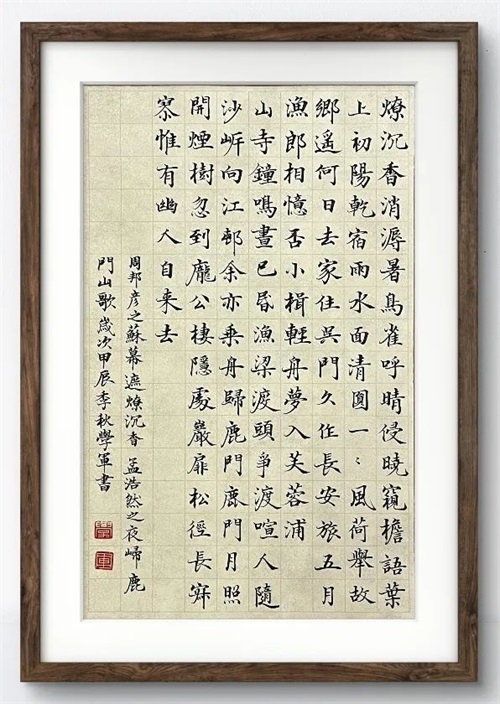 燎沉香消溽暑鳥雀呼晴侵曉窺檐語葉
上初陽乾宿雨水面清圓一〻風荷舉故
鄉遥何日去家住吳門久作長安旅五月
漁郎相憶否小楫輕舟夢入芙蓉浦
山寺鐘鳴晝已昏漁梁渡頭爭渡喧人隨
沙岍向江邨余亦乘舟歸鹿門鹿門月照
開煙樹忽到龐公棲隱處巖扉松徑長寂
寂惟有幽人自来去
周邦彦之蘇幕遮燎沉香 孟浩然之夜歸鹿
門山歌歲次甲辰季秋學軍書